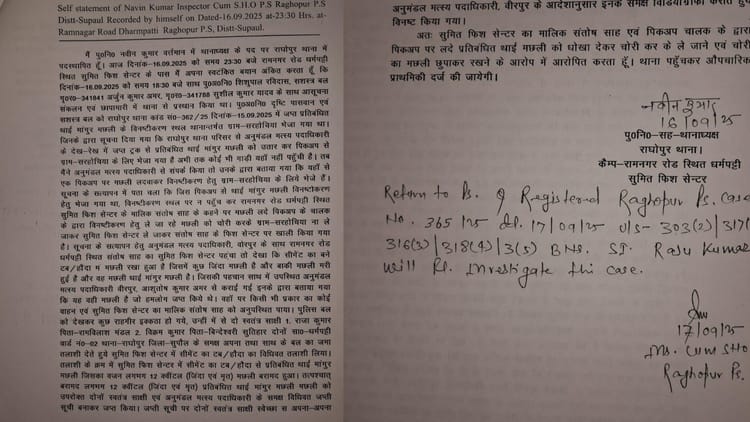 Self statement of Navin Kumar Inspector Cum S.H.O P.S Raghopur P.S
Distt-Supaul Recorded by himself on Dated-16.09.2025 at-23:30 Hrs. at-
Ramnagar Road Dharmpatti Raghopur P.S, Distt-Supaul.
मैं पु०नि० नवीन कुमार वर्त्तमान में थानाध्यक्ष के पद पर राघोपुर थाना में
पदस्थापित हूँ। आज दिनांक-16.09.2025 को समय 23:30 बजे रामनगर रोड धर्मपट्टी
स्थित सुमित फिश सेन्टर के पास में अपना स्वटंकित बयान अंकित करता हूँ, कि
दिनांक-16.09.2025 को समय 18:30 बजे साथ पु०अ०नि० शिशुपाल रविदास, सशस्त्र बल
गृ०र०-341841 अर्जुन कुमार अमर, गृ०र०-341788 सुशील कुमार यादव के साथ आसूचना
संकलन एवं छापामारी में थाना से प्रस्थान किया था। पु०अ०नि० दृष्टि पासवान एवं
सशस्त्र बल को राघोपुर थाना कांड सं०-362/25 दिनांक-15.09.2025 में जप्त प्रतिबंधित
थाई मांगुर मछली के विनष्टीकरण स्थल थानान्तर्गत ग्राम-सरहोचिया भेजा गया था।
जिनके द्वारा सूचना दिया गया कि राघोपुर थाना परिसर से अनुमंडल मत्स्य पदाधिकारी
के देख-रेख में जप्त ट्रक से प्रतिबंधित थाई मांगुर मछली को उतार कर पिकअप से
ग्राम-सरहोचिया के लिए भेजा गया है अभी तक कोई भी गाड़ी यहाँ नहीं पहुंची है। तब
मैंने अनुमंडल मत्स्य पदाधिकारी से संपर्क किया तो उनके द्वारा बताया गया कि यहाँ से
एक पिकअप पर मछली लदवाकर विनष्टीकरण हेतु ग्राम-सरहोचिया के लिये भेजे हैं।
सूचना के सत्यापन में पता चला कि जिस पिकअप से थाई मांगुर मछली विनष्टीकरण
हेतु भेजा गया था, विनष्टीकरण स्थल पर न पहुंच कर रामनगर रोड धर्मपट्टी स्थित
सुमित फिश सेन्टर के मालिक संतोष साह के कहने पर मछली लदे पिकअप के चालक
के द्वारा विनष्टीकरण हेतु ले जा रहे मछली को चोरी करके ग्राम-सरहोचिया ना ले
जाकर सुमित फिश सेन्टर ले जाकर संतोष साह के फिश सेन्टर पर खाली किया गया
है। सूचना के सत्यापन हेतु अनुमंडल मत्स्य पदाधिकारी, वीरपुर के साथ रामनगर रोड
धर्मपट्टी स्थित संतोष साह का सुमित फिश सेन्टर पहुंचा तो देखा कि सीमेंट का बने
टब/हौदा में मछली रखा हुआ है जिसमें कुछ जिंदा मछली है और बाकी मछली मरी
हुई है और वह मछली थाई मांगुर मछली है। जिसकी पहचान साथ में उपस्थित अनुमंडल
मत्स्य पदाधिकारी वीरपुर, आशुतोष कुमार अमर से कराई गई इनके द्वारा बताया गया
कि यह वही मछली है जो हमलोग जप्त किये थे। वहाँ पर किसी भी प्रकार का कोई
वाहन एवं सुमित फिश सेन्टर का मालिक संतोष साह को अनुपस्थित पाया। पुलिस बल
को देखकर कुछ राहगीर इकक्ठा हो गये, उन्हीं में से दो स्वतंत्र साक्षी 1. राजा कुमार
पिता-रामविलाश मंडल 2. विक्रम कुमार पिता-बिन्देश्वरी सुतिहार दोनों सा०-धर्मपट्टी
वार्ड नं०-02 थाना-राघोपुर जिला-सुपौल के समक्ष अपना तथा साथ के बल का जमा
तलाशी देते हुये सुमित फिश सेन्टर में सीमेंट का टब/हौदा का विधिवत तलाशी लिया।
तलाशी के क्रम में सुमित फिश सेन्टर में सीमेंट का टब/हौदा से प्रतिबंधित थाई मांगुर
मछली जिसका वजन लगभग 12 क्वींटल (जिंदा एवं मृत) मछली बरामद हुआ। तत्पश्चात्
बरामद लगभग 12 क्वींटल (जिंदा एवं मृत) प्रतिबंधित थाई मांगुर मछली मछली को
उपरोक्त दोनों स्वतंत्र साक्षी एवं अनुमंडल मत्स्य पदाधिकारी के समक्ष विधिवत जप्ती
सूची बनाकर जप्त किया। जप्ती सूची पर दोनों स्वतंत्र साक्षी स्वेच्छा से अपना-अपना
अनुमंडल मत्स्य पदाधिकारी, वीरपुर के आदेशानुसार इनके समक्ष विडियोग्राफी कराते हुए
विनष्ट किया गया।
अतः सुमित फिश सेन्टर का मालिक संतोष साह एवं पिकअप चालक के द्वारा
पिकअप पर लदे प्रतिबंधित थाई मछली को धोखा देकर चोरी कर के ले जाने एवं चोरी
का मछली छुपाकर रखने के आरोप में आरोपित करता हूँ। थाना पहुंचकर औपचारिक
प्राथमिकी दर्ज की जायेगी।
नवीन कुमार
16/09/25
पु०नि०-सह-थानाध्यक्ष
राघोपुर थाना।
कैम्प-रामनगर रोड स्थित धर्मपट्टी
सुमित फिश सेन्टर
Return to Ps. & Registered Raghopur Ps. Case
No. 365/25 dt. 17/09/25 u/s- 303(2)/317(
316(3)/318(4)/3(5) BNS. SI. Raju Kumar
will Pl. Investigate this case.
17/09/25
Ins. cum SHO
Raghopur Ps.